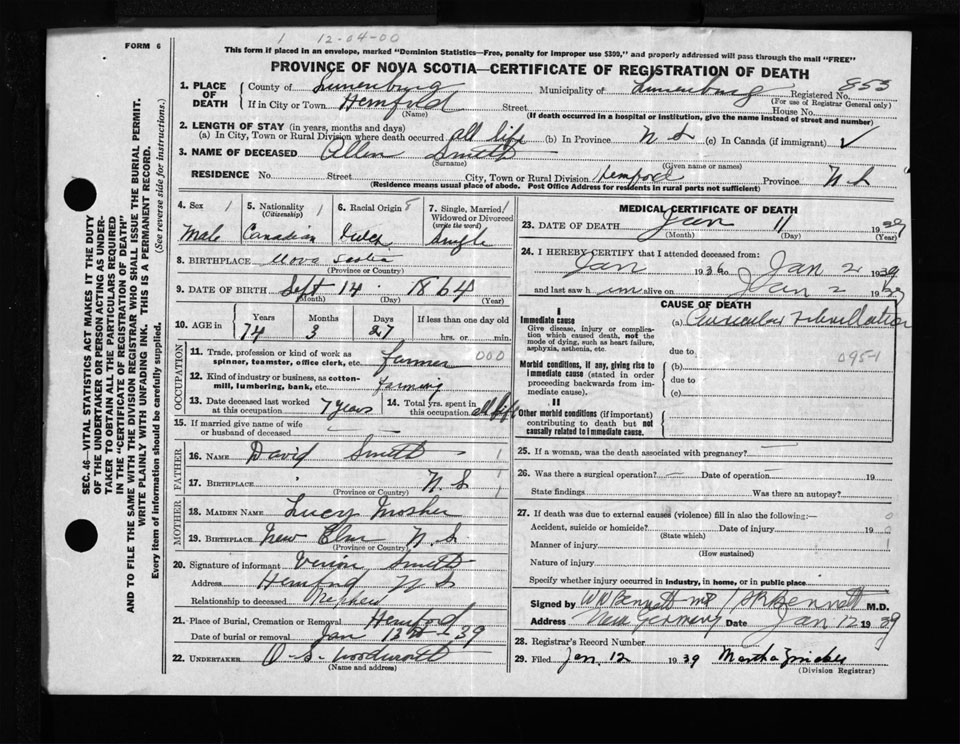 1 12-04-00
FORM 6
This form if placed in an envelope, marked "Dominion Statistics—Free, penalty for improper use $300," and properly addressed will pass through the mail "FREE"
PROVINCE OF NOVA SCOTIA—CERTIFICATE OF REGISTRATION OF DEATH
1. PLACE OF DEATH
County of Lunenburg Municipality of Lunenburg Registered No. 853
(For use of Registrar General only)
If in City or Town Hemford Street House No.
(Name) (If death occurred in a hospital or institution, give the name instead of street and number)
2. LENGTH OF STAY (in years, months and days)
(a) In City, Town or Rural Division where death occurred all life (b) In Province N S (c) In Canada (if immigrant) ✓
3. NAME OF DECEASED Allen Smith
(Surname) (Given name or names)
RESIDENCE No. Street City, Town or Rural Division Hemford Province N S
(Residence means usual place of abode. Post Office Address for residents in rural parts not sufficient)
SEC. 46—VITAL STATISTICS ACT MAKES IT THE DUTY
OF THE UNDERTAKER OR PERSON ACTING AS UNDER-
TAKER TO OBTAIN ALL THE PARTICULARS REQUIRED
IN THE "CERTIFICATE OF REGISTRATION OF DEATH"
AND TO FILE THE SAME WITH THE DIVISION REGISTRAR WHO SHALL ISSUE THE BURIAL PERMIT.
WRITE PLAINLY WITH UNFADING INK. THIS IS A PERMANENT RECORD.
Every item of information should be carefully supplied. (See reverse side for instructions.)
4. Sex 1 5. Nationality (Citizenship) 1 6. Racial Origin 8 7. Single, Married, Widowed or Divorced (write the word) 1
Male Canadian Dutch Single
8. BIRTHPLACE Nova Scotia
(Province or Country)
9. DATE OF BIRTH Sept 14 1864
(Month) (Day) (Year)
10. AGE in Years Months Days If less than one day old
74 3 27 hrs. or min.
OCCUPATION
11. Trade, profession or kind of work as spinner, teamster, office clerk, etc. farmer 000
12. Kind of industry or business, as cotton-mill, lumbering, bank, etc. Farming
13. Date deceased last worked at this occupation 7 years 14. Total yrs. spent in this occupation all life
15. If married give name of wife or husband of deceased
FATHER
16. NAME David Smith 1
17. BIRTHPLACE N. S 1
(Province or Country)
MOTHER
18. MAIDEN NAME Lucy Mosher
19. BIRTHPLACE New Elm N. S
(Province or Country)
20. Signature of informant Smith
Address Hemford N S
Relationship to deceased Nephew
21. Place of Burial, Cremation or Removal Hemford
Date of burial or removal Jan 39
22. UNDERTAKER O. S. Woodworth
(Name and address)
MEDICAL CERTIFICATE OF DEATH
23. DATE OF DEATH Jan 11 1939
(Month) (Day) (Year)
24. I HEREBY CERTIFY that I attended deceased from:
Jan 193 Jan 2 1939
and last saw h im alive on Jan 2 1939
CAUSE OF DEATH
I
Immediate cause
Give disease, injury or complication which caused death, not the mode of dying, such as heart failure, asphyxia, asthenia, etc.
(a) Auricular Fibrillation
due to
0951
Morbid conditions, if any, giving rise to immediate cause (stated in order proceeding backwards from immediate cause).
(b)
due to
(c)
II
Other morbid conditions (if important) contributing to death but not causally related to immediate cause.
25. If a woman, was the death associated with pregnancy?
26. Was there a surgical operation? Date of operation 19
State findings Was there an autopsy?
27. If death was due to external causes (violence) fill in also the following:— 0
Accident, suicide or homicide? Date of injury 19 0
(State which)
Manner of injury 1
(How sustained)
Nature of injury
Specify whether injury occurred in industry, in home, or in public place
Signed by W W Bennett MD / Bennett M.D.
Address New Germany Date Jan 12 1939
28. Registrar's Record Number
29. Filed Jan. 12 1939 Martha
(Division Registrar)